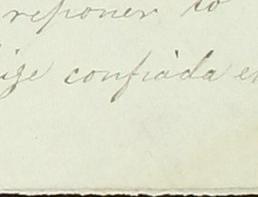 reponer to
confiada en